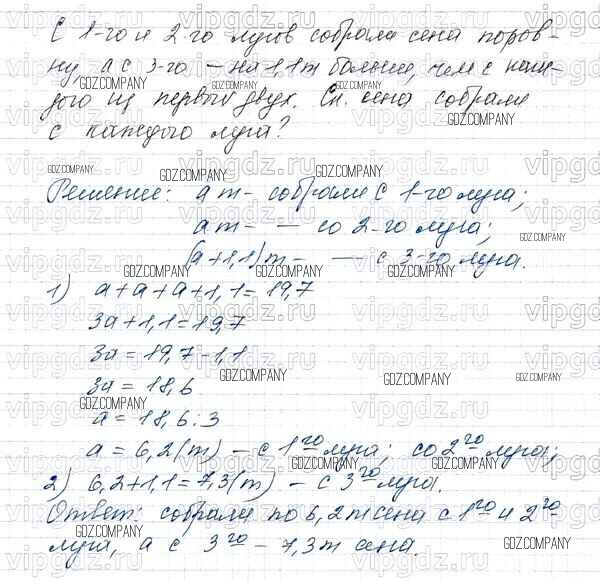 С 1-го и 2-го лугов собрали сена поров-
ну, а с 3-го — на 1,1 т больше, чем с каж-
дого из первых двух. Ск. сена собрали
с каждого луга?
Решение: а т - собрали с 1-го луга;
а т - — со 2-го луга;
(а+1,1) т - — с 3-го луга.
1) а+а+а+1,1=19,7
3а+1,1=19,7
3а=19,7-1,1
3а=18,6
а=18,6:3
а=6,2(т) - с 1го луга; со 2го луга;
2) 6,2+1,1=7,3(т) - с 3го луга.
Ответ: собрали по 6,2 т сена с 1го и 2го
луга, а с 3го - 7,3 т сена.
GDZ.COMPANY
vipgdz.ru